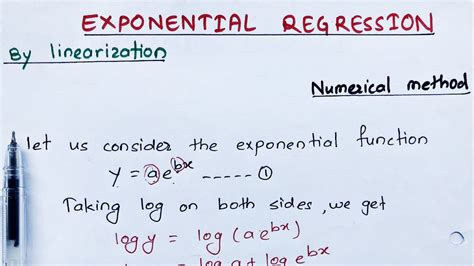 EXPONENTIAL REGRESSION
By linearization
Numerical method
let us consider the exponential function
y = ae^bx ----- ①
Taking log on both sides, we get
log y = log (ae^bx)
= log a + log e^bx